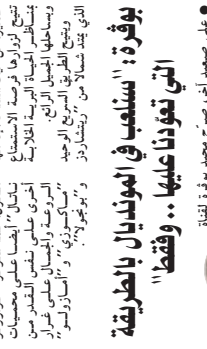 تتيح لزوارها فرصة الاستمتاع
بمناظر الحياة البرية الخلابة
وبساحلها الجميل الرائع.
ويتيح الطريق السريع الوحيد
الذي يمتد شمالا من "ريتشاردز
أيضا على محميات
أخرى على نفس القدر من
الروعة والجمال على غرار
"ماكوزي" و"أمازولو"
و"بونجولا".
بوقرة: "سنلعب في المونديال بالطريقة
التي تعودنا عليها.. وفقط"
على صعيد آخر، صرّح مجيد بوقرة لقناة